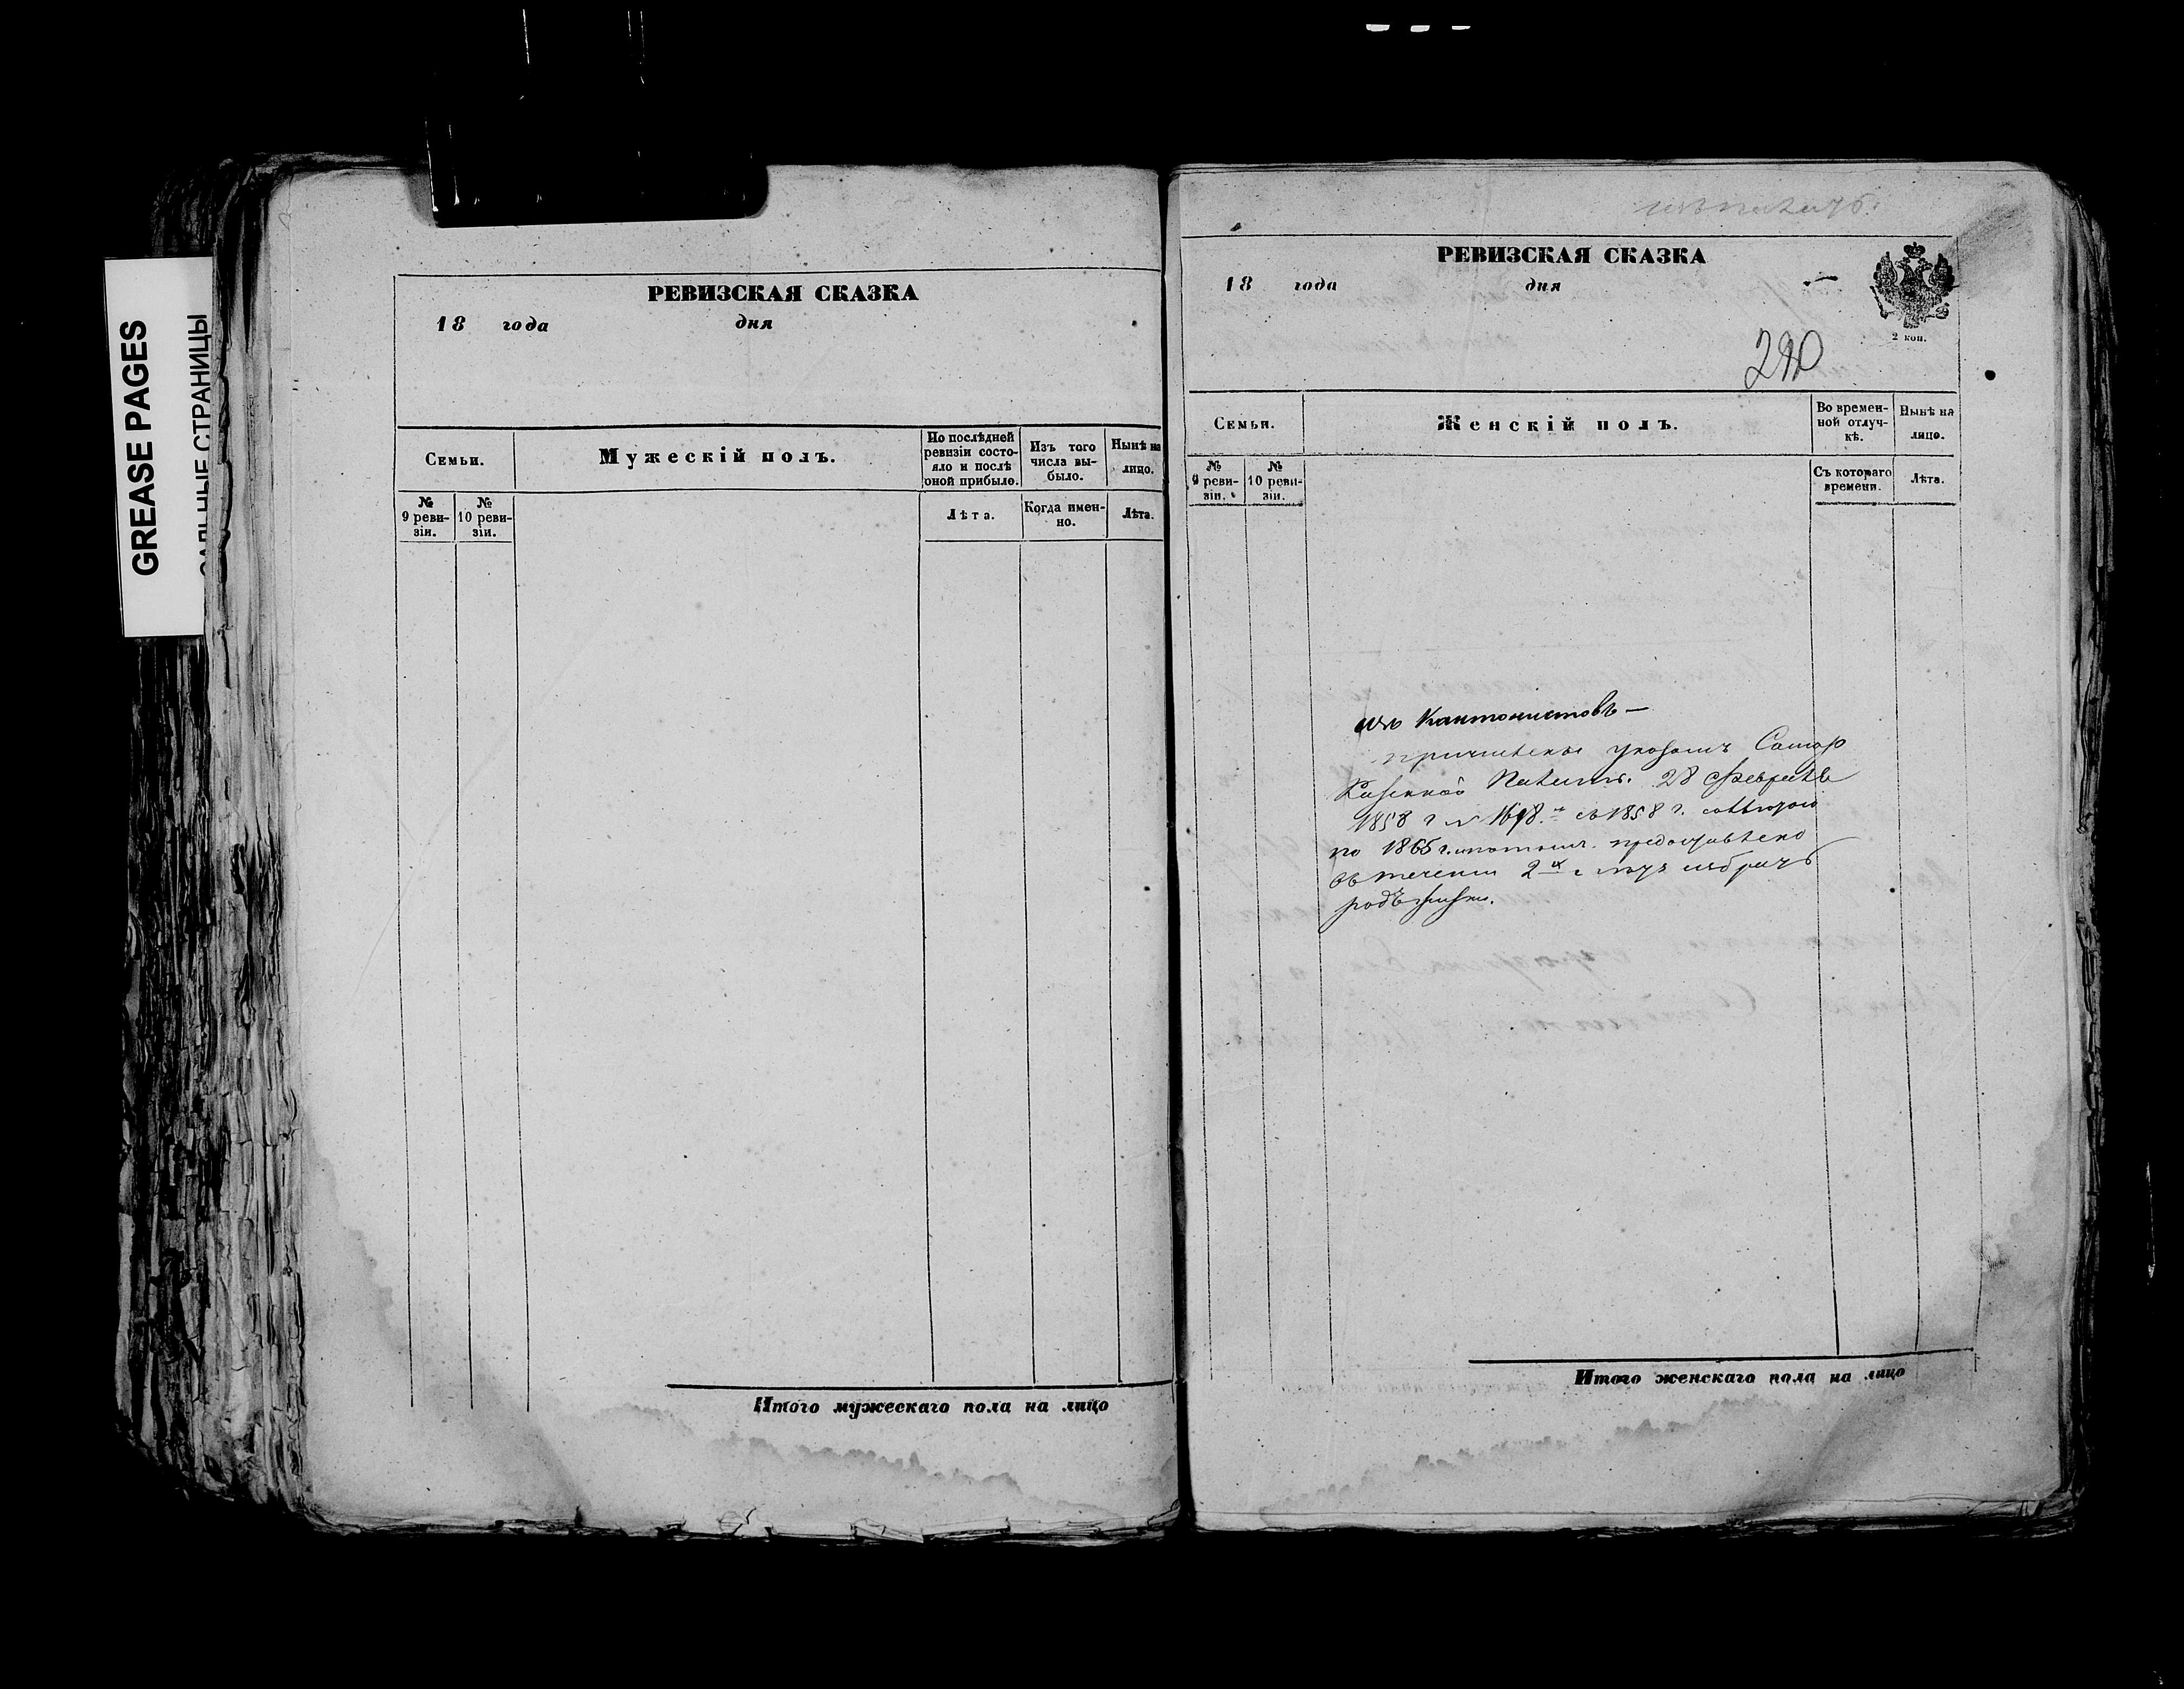 GREASE PAGES
САЛЬНЫЕ СТРАНИЦЫ
РЕВИЗСКАЯ СКАЗКА
18 года дня
Семьи.
Мужескій полъ.
По послѣдней
ревизіи состо-
яло и послѣ
оной прибыло.
Изъ того
числа вы-
было.
Нынѣ на
лицо.
№
9 реви-
зіи.
№
10 реви-
зіи.
Лѣта.
Когда имен-
но.
Лѣта.
Итого мужескаго пола на лицо
РЕВИЗСКАЯ СКАЗКА
18 года дня
2 коп.
Семьи.
Женскій полъ.
Во времен-
ной отлуч-
кѣ.
Нынѣ на
лицо.
№
9 реви-
зіи.
№
10 реви-
зіи.
Съ котораго
времени.
Лѣта.
изъ Кантонистовъ —
причислены указомъ Самар
Казенной Палаты. 28 Февраля
1858 г № съ 1858 г.
по 1865 г. предоставлено
въ теченіи 2х избрать
родъ жизни.
Итого женскаго пола на лицо